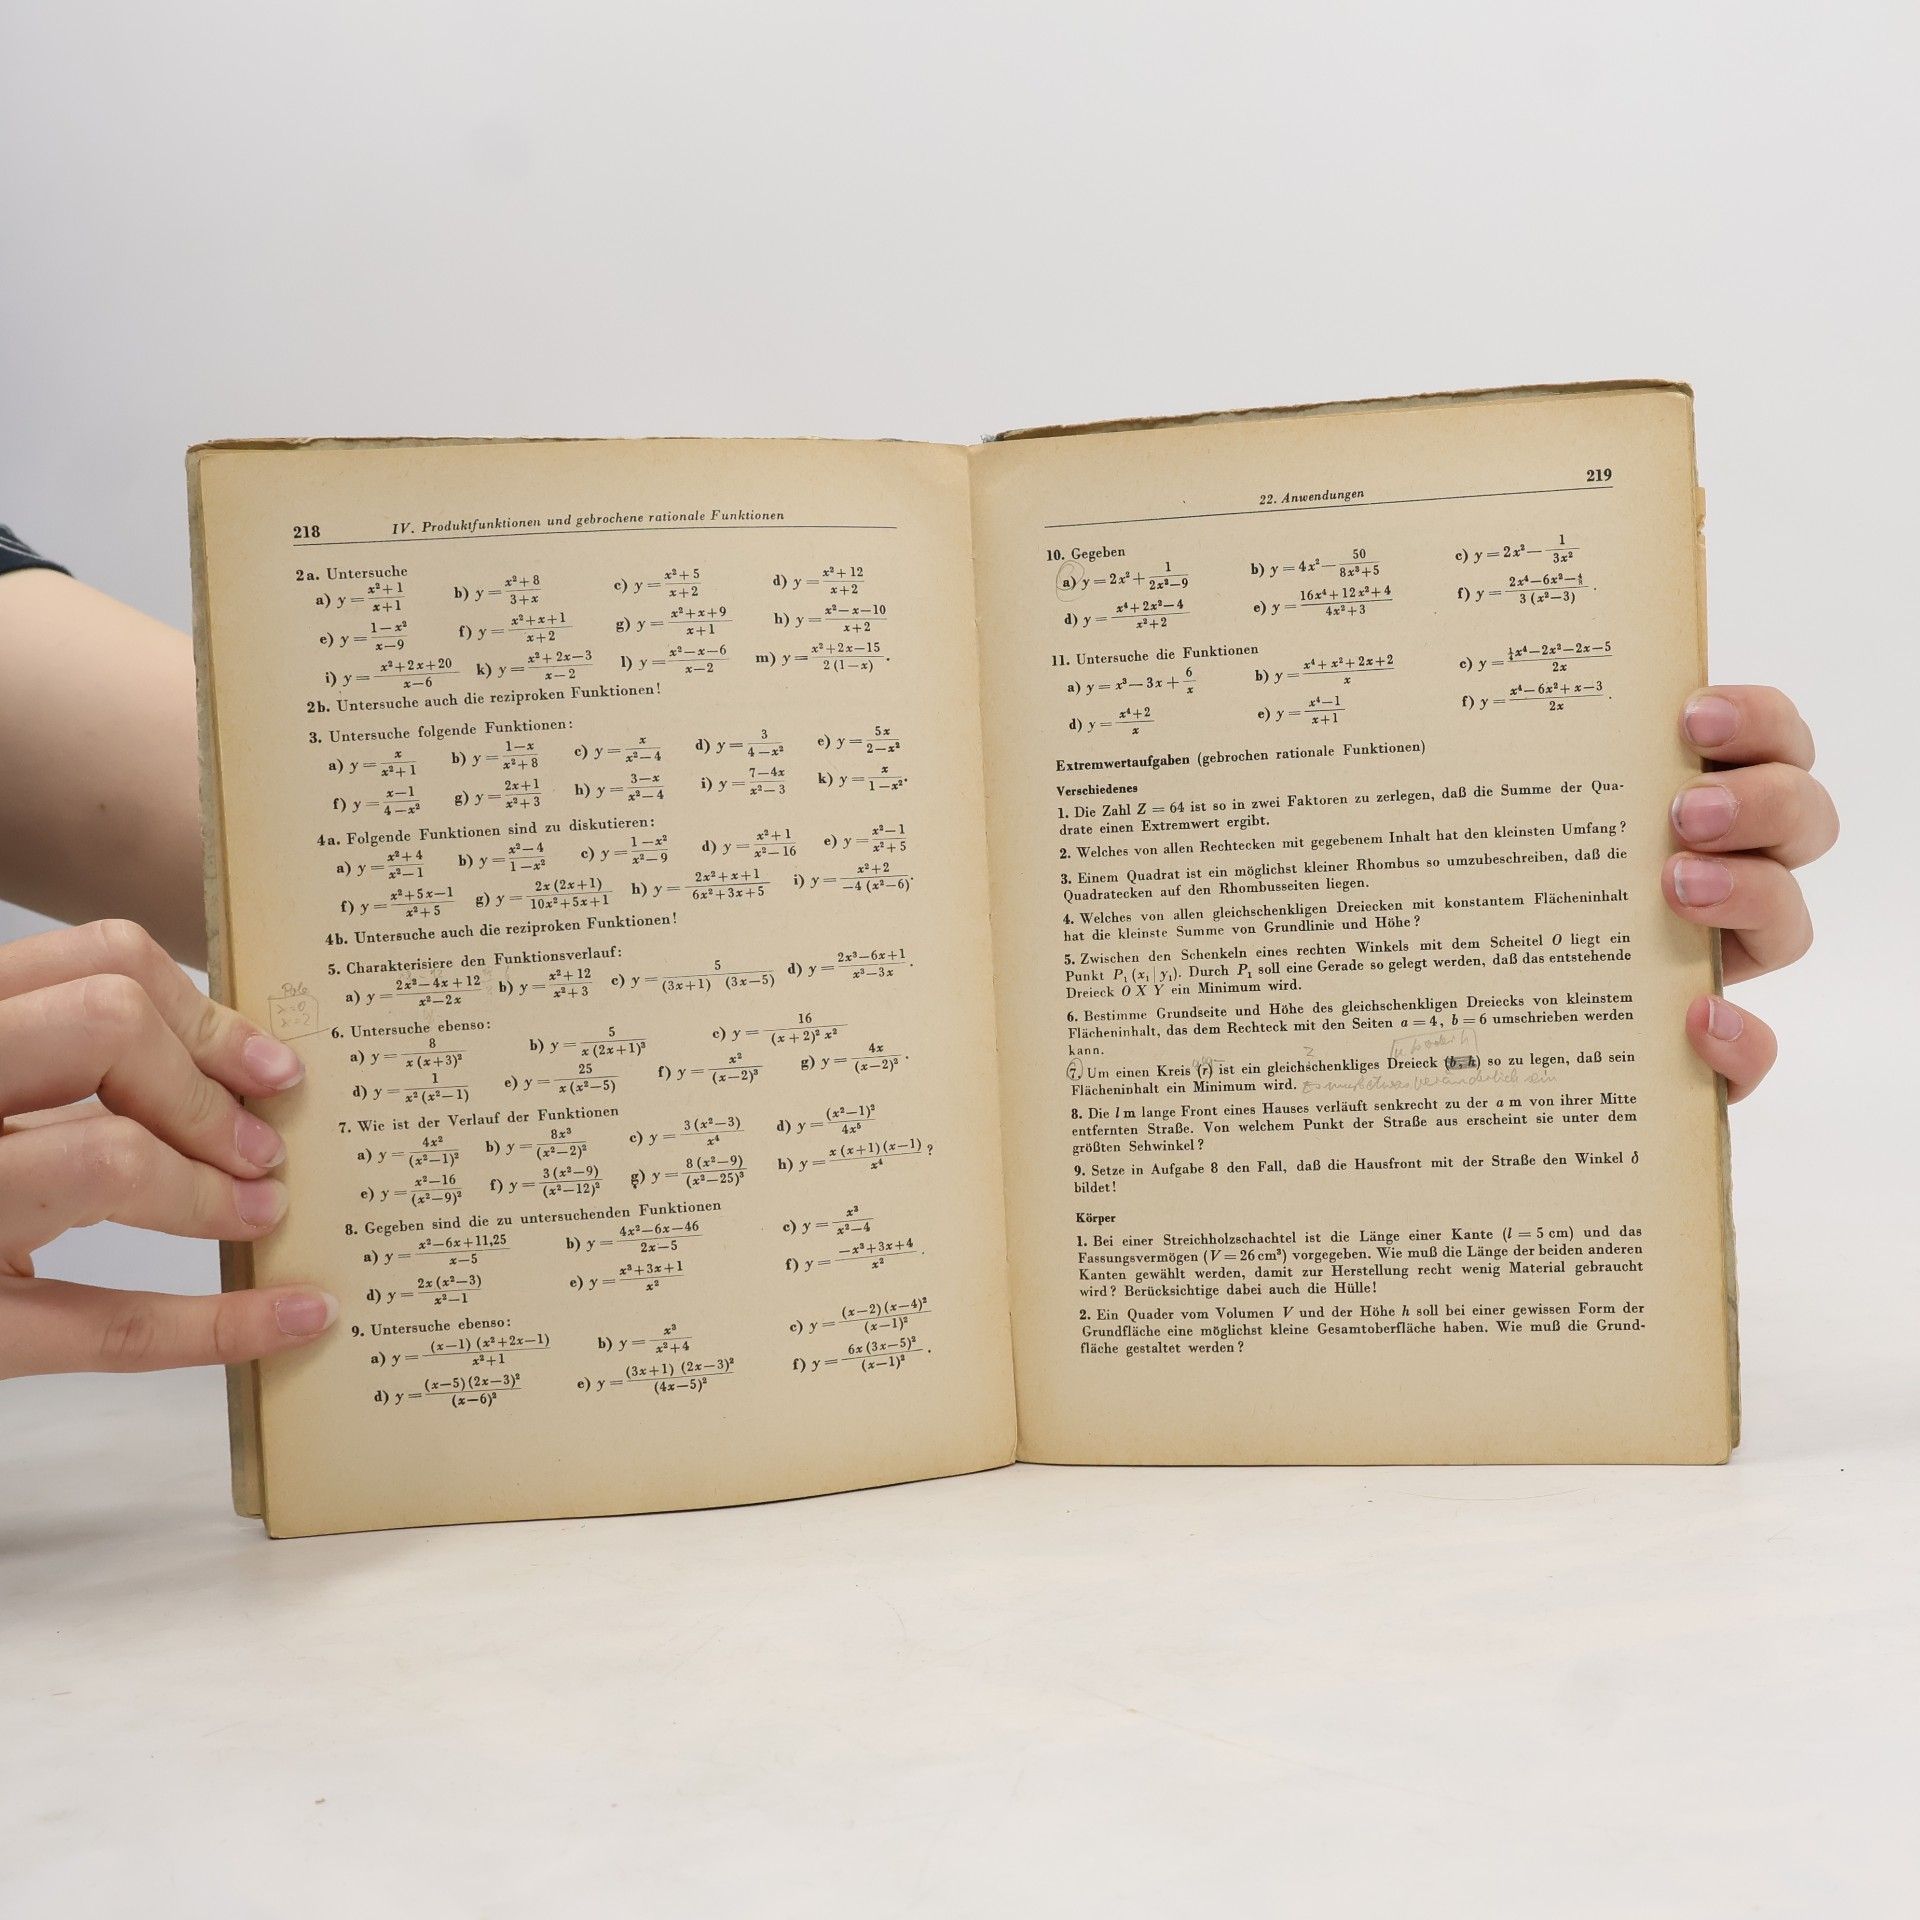 218 IV. Produktfunktionen und gebrochene rationale Funktionen
2a. Untersuche
a) y = (x²+1)/(x+1) b) y = (x²+8)/(3+x) c) y = (x²+5)/(x+2) d) y = (x²+12)/(x+2)
e) y = (1−x²)/(x−9) f) y = (x²+x+1)/(x+2) g) y = (x²+x+9)/(x+1) h) y = (x²−x−10)/(x+2)
i) y = (x²+2x+20)/(x−6) k) y = (x²+2x−3)/(x−2) l) y = (x²−x−6)/(x−2) m) y = (x²+2x−15)/(2(1−x)).
2b. Untersuche auch die reziproken Funktionen!
3. Untersuche folgende Funktionen:
a) y = x/(x²+1) b) y = (1−x)/(x²+8) c) y = x/(x²−4) d) y = 3/(4−x²) e) y = 5x/(2−x²)
f) y = (x−1)/(4−x²) g) y = (2x+1)/(x²+3) h) y = (3−x)/(x²−4) i) y = (7−4x)/(x²−3) k) y = x/(1−x²).
4a. Folgende Funktionen sind zu diskutieren:
a) y = (x²+4)/(x²−1) b) y = (x²−4)/(1−x²) c) y = (1−x²)/(x²−9) d) y = (x²+1)/(x²−16) e) y = (x²−1)/(x²+5)
f) y = (x²+5x−1)/(x²+5) g) y = 2x(2x+1)/(10x²+5x+1) h) y = (2x²+x+1)/(6x²+3x+5) i) y = (x²+2)/(−4(x²−6)).
4b. Untersuche auch die reziproken Funktionen!
5. Charakterisiere den Funktionsverlauf:
a) y = (2x²−4x+12)/(x²−2x) b) y = (x²+12)/(x²+3) c) y = 5/((3x+1) (3x−5)) d) y = (2x³−6x+1)/(x³−3x).
Pole
x=0
x=2
6. Untersuche ebenso:
a) y = 8/(x(x+3)²) b) y = 5/(x(2x+1)³) c) y = 16/((x+2)² x²)
d) y = 1/(x²(x²−1)) e) y = 25/(x(x²−5)) f) y = x²/(x−2)³ g) y = 4x/(x−2)³.
7. Wie ist der Verlauf der Funktionen
a) y = 4x²/(x²−1)² b) y = 8x³/(x²−2)² c) y = 3(x²−3)/x⁴ d) y = (x²−1)²/4x⁵
e) y = (x²−16)/(x²−9)² f) y = 3(x²−9)/(x²−12)² g) y = 8(x²−9)/(x²−25)³ h) y = x(x+1)(x−1)/x⁴ ?
8. Gegeben sind die zu untersuchenden Funktionen
a) y = (x²−6x+11,25)/(x−5) b) y = (4x²−6x−46)/(2x−5) c) y = x³/(x²−4)
d) y = 2x(x²−3)/(x²−1) e) y = (x³+3x+1)/x² f) y = (−x³+3x+4)/x².
9. Untersuche ebenso:
a) y = (x−1) (x²+2x−1)/(x²+1) b) y = x³/(x²+4) c) y = (x−2)(x−4)²/(x−1)²
d) y = (x−5)(2x−3)²/(x−6)² e) y = (3x+1) (2x−3)²/(4x−5)² f) y = 6x(3x−5)²/(x−1)².
22. Anwendungen 219
10. Gegeben
a) y = 2x² + 1/(2x²−9) b) y = 4x² − 50/(8x³+5) c) y = 2x² − 1/3x²
d) y = (x⁴+2x²−4)/(x²+2) e) y = (16x⁴+12x²+4)/(4x²+3) f) y = (2x⁴−6x²−)/(3(x²−3)).
11. Untersuche die Funktionen
a) y = x³−3x+6/x b) y = (x⁴+x²+2x+2)/x c) y = (¼x⁴−2x²−2x−5)/2x
d) y = (x⁴+2)/x e) y = (x⁴−1)/(x+1) f) y = (x⁴−6x²+x−3)/2x.
Extremwertaufgaben (gebrochen rationale Funktionen)
Verschiedenes
1. Die Zahl Z = 64 ist so in zwei Faktoren zu zerlegen, daß die Summe der Qua-
drate einen Extremwert ergibt.
2. Welches von allen Rechtecken mit gegebenem Inhalt hat den kleinsten Umfang?
3. Einem Quadrat ist ein möglichst kleiner Rhombus so umzubeschreiben, daß die
Quadratecken auf den Rhombusseiten liegen.
4. Welches von allen gleichschenkligen Dreiecken mit konstantem Flächeninhalt
hat die kleinste Summe von Grundlinie und Höhe?
5. Zwischen den Schenkeln eines rechten Winkels mit dem Scheitel O liegt ein
Punkt P₁ (x₁ | y₁). Durch P₁ soll eine Gerade so gelegt werden, daß das entstehende
Dreieck O X Y ein Minimum wird.
6. Bestimme Grundseite und Höhe des gleichschenkligen Dreiecks von kleinstem
Flächeninhalt, das dem Rechteck mit den Seiten a = 4, b = 6 umschrieben werden
kann.
7. Um einen Kreis (r) ist ein gleichschenkliges Dreieck (b = h) so zu legen, daß sein
Flächeninhalt ein Minimum wird. es muß etwas veränderlich sein
8. Die l m lange Front eines Hauses verläuft senkrecht zu der a m von ihrer Mitte
entfernten Straße. Von welchem Punkt der Straße aus erscheint sie unter dem
größten Sehwinkel?
9. Setze in Aufgabe 8 den Fall, daß die Hausfront mit der Straße den Winkel δ
bildet!
Körper
1. Bei einer Streichholzschachtel ist die Länge einer Kante (l = 5 cm) und das
Fassungsvermögen (V = 26 cm³) vorgegeben. Wie muß die Länge der beiden anderen
Kanten gewählt werden, damit zur Herstellung recht wenig Material gebraucht
wird? Berücksichtige dabei auch die Hülle!
2. Ein Quader vom Volumen V und der Höhe h soll bei einer gewissen Form der
Grundfläche eine möglichst kleine Gesamtoberfläche haben. Wie muß die Grund-
fläche gestaltet werden?